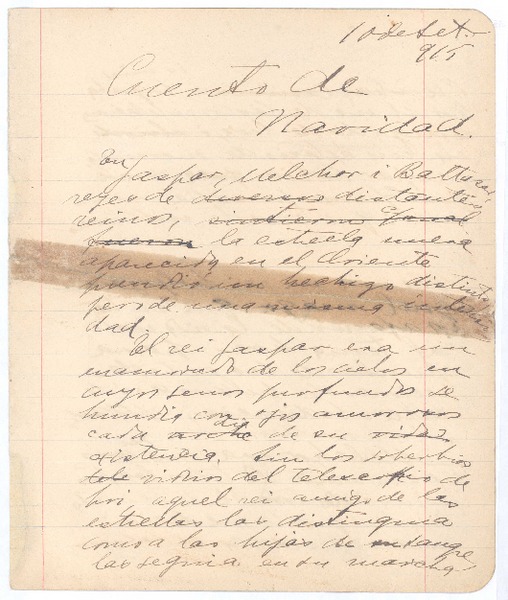 10 de Set.
915
Cuento de
Navidad.
En Gaspar, Melchor i Baltasar,
reyes de diversos distante
reinos,
fueron la estrella nueva
aparecida en el Oriente
prendió un hechizo distinto
pero de una misma
dad.
El rei Gaspar era un
enamorado de los cielos en
cuyos senos profundos se
hundia con ojos amorosos
cada de su vida
existencia. Sin los soberbios
vidrios del telescopio de
hoi aquel rei amigo de las
estrellas las distinguia
como a las hijas de su sangre
las seguia en su marcha